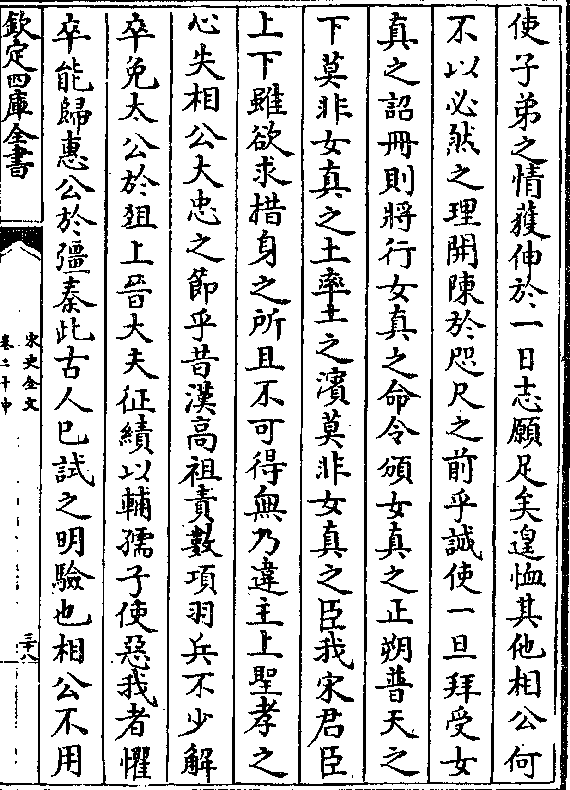 使子弟之情獲伸於一日志願足矣遑恤其他相公何
不以必然之理開陳於咫尺之前乎誠使一旦拜受女
真之詔冊則將行女真之命令頒女真之正朔普天之
下莫非女真之土率土之濱莫非女真之臣我宋君臣
上下雖欲求措身之所且不可得無乃違主上聖孝之
心失相公大忠之節乎昔漢高祖責數項羽兵不少解
卒免太公於俎上晉大夫征繕以輔孺子使惡我者懼
卒能歸惠公於彊秦此古人已試之明驗也相公不用
欽定四庫全書
宋史全文
卷二十中
三十八